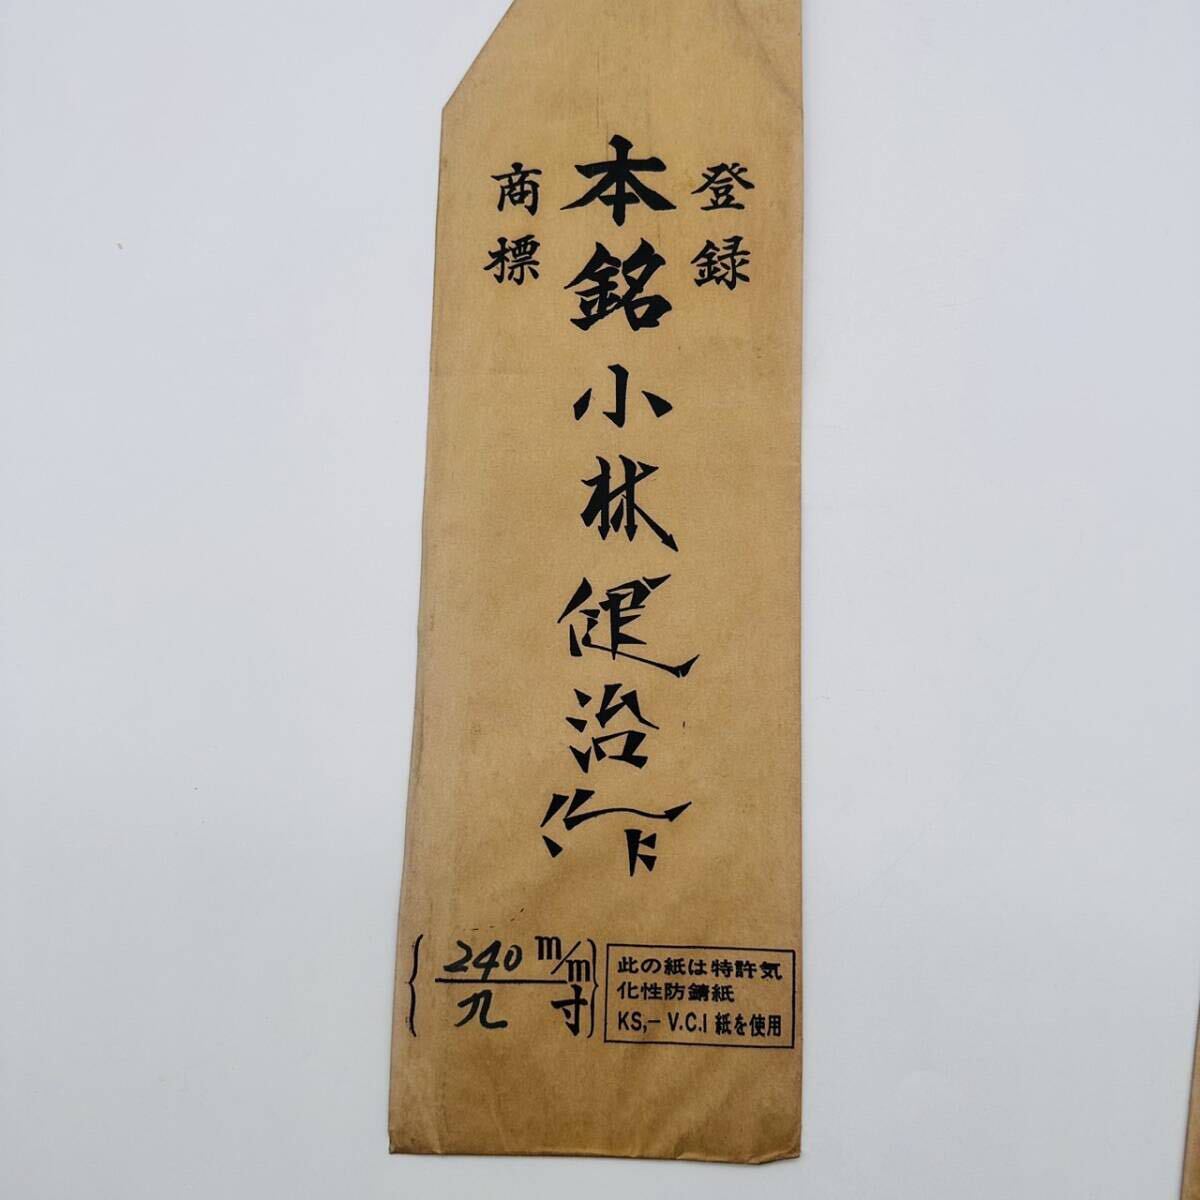 登録
本銘小林健治作
商標
240 m/m
九 寸
此の紙は特許気
化性防錆紙
KS,− V.C.I 紙を使用